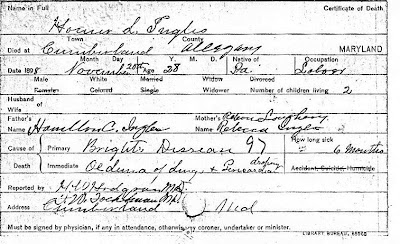 Name in Full Certificate of Death
Homer L. Ingles
Town County
Died at Cumberland Allegany MARYLAND
Month Day Y. M. D. Native of Occupation
Date 189 November 20th Age 28 Pa. Labor
Male White Married Widow Divorced
Female Colored Single Widower Number of children living 2
Husband of
Wife
Father's Mother's
Name Hamilton C. Ingles Name Rebecca Ingles
Cause of Primary Brights Disease 97 How long sick 6 Months
Death Immediate Oedema of lungs + dropsy Accident, Suicide, Homicide
Reported by
Address Cumberland Md
Must be signed by physician, if any in attendance, otherwise by coroner, undertaker or minister.
LIBRARY BUREAU,